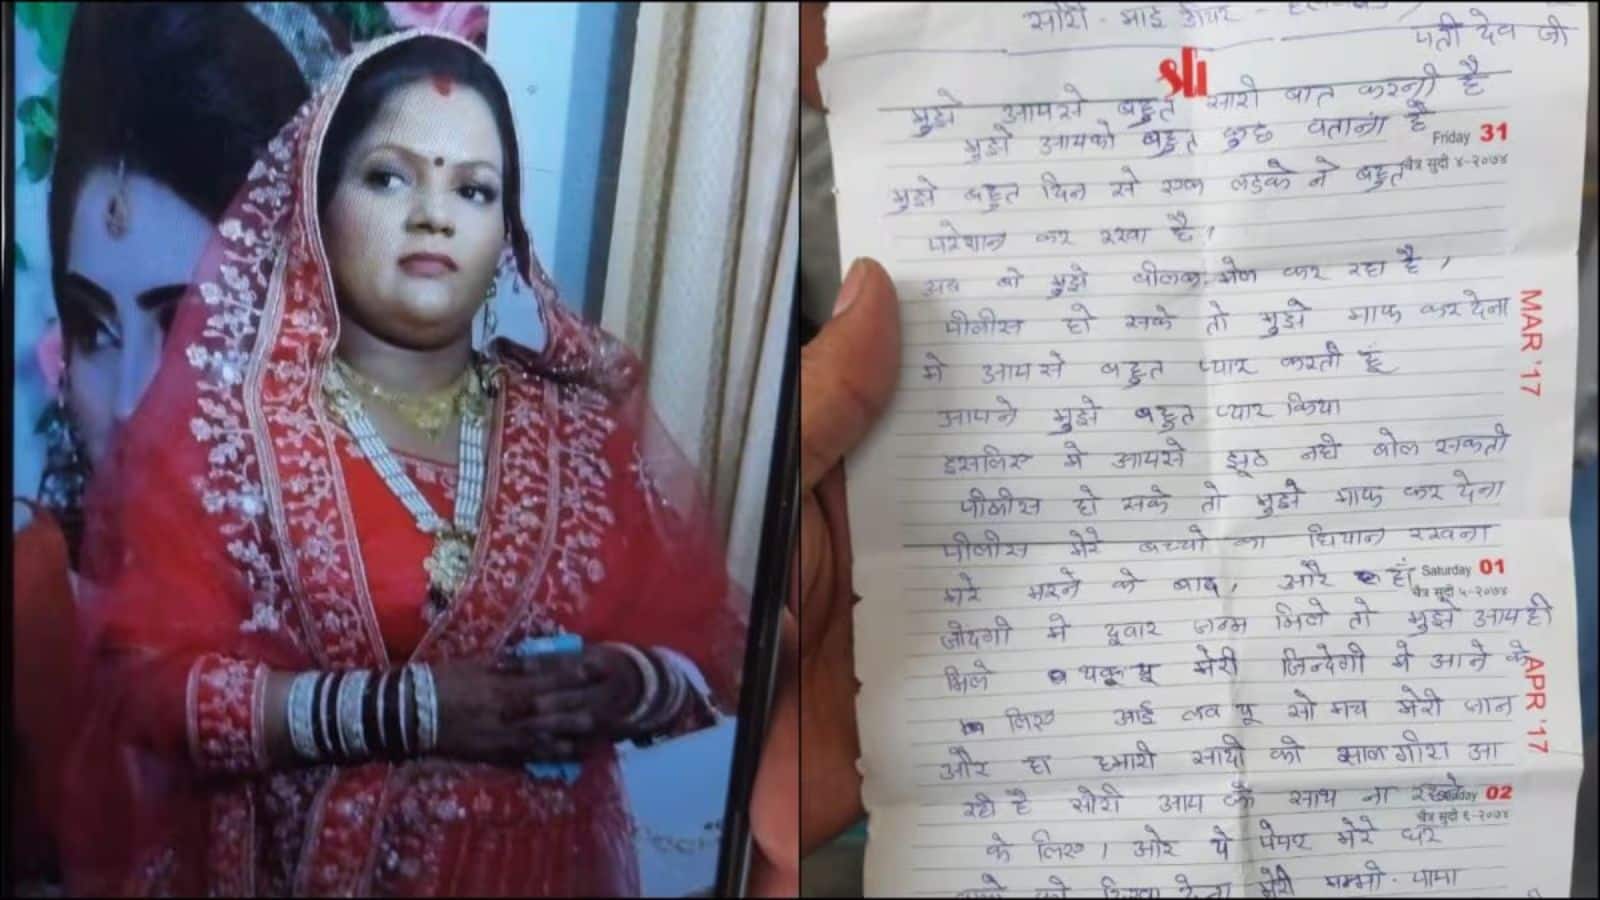 सोरी - माई डीयर -
पती देव जी
sli
मुझे आपसे बहुत सारी बात करनी है
मुझे आपको बहुत कुछ बताना है
Friday 31
चैत्र सुदी ४-२०७४
मुझे बहुत दिन से एक लडके ने बहुत
परेशान कर रखा है।
अब वो मुझे बीलक मेल कर रहा है।
पीलीस हो सके तो मुझे माफ कर देना
MAR '17
मे आपसे बहुत प्यार करती हूं
आपने मुझे बहुत प्यार किया
इसलिए मे आपसे झूठ नही बोल सकती
पीलीस हो सके तो मुझे माफ कर देना
पीलीस मेरे बच्चो का धियान रखना
मेरे मरने के बाद, और हाँ
Saturday 01
चैत्र सुदी ५-२०७४
जीदगी मे दूवार जन्म मिले तो मुझे आप ही
मिले थेकू यू मेरी जिन्देगी मे आने के
APR '17
लिए आई लव यू सो मच मेरी जान
और हा हमारी सादी की साल गीरा आ
रही है सोरी आप के साथ ना रहने
Sunday 02
चैत्र सुदी ६-२०७४
के लिए। और ये पेपर मेरे घर
को दिखा देना मेरी मम्मी - पापा